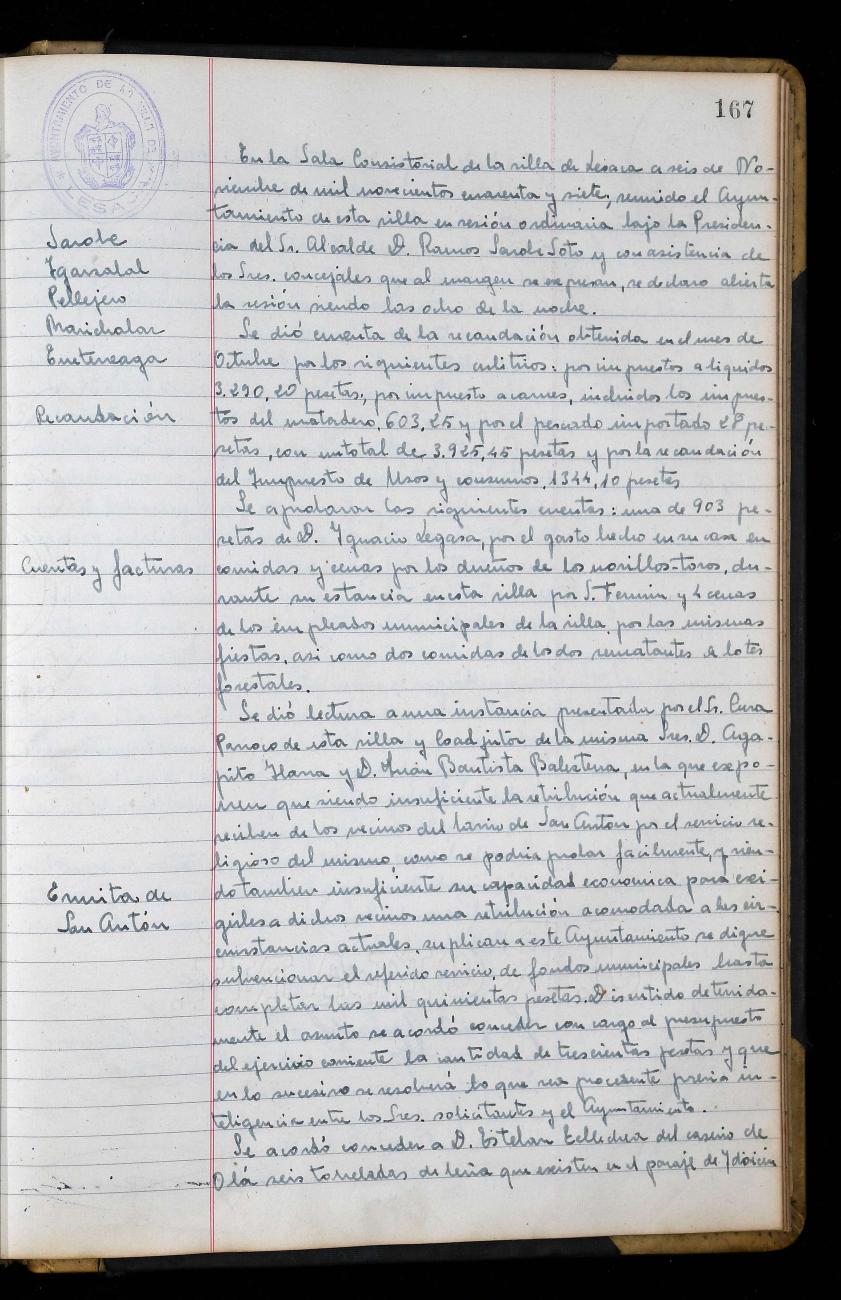 167
AYUNTAMIENTO DE LA VILLA DE
LESACA
En la Sala Consistorial de la villa de Lesaca a seis de No-
viembre de mil novecientos cuarenta y siete, reunido el Ayun-
tamiento de esta villa en sesión ordinaria bajo la Presiden-
Sarobe
cia del Sr. Alcalde D. Ramos Sarobe Soto y con asistencia de
Ygarzabal
los Sres. concejales que al margen se expresan, se declaro abierta
Pellejero
la sesión siendo las ocho de la noche.
Marichalar
Se dió cuenta de la recaudación obtenida en el mes de
Errteneaga
Octubre por los siguientes arbitrios: por impuestos a liquidos
3.290,20 pesetas, por impuesto a carnes, incluidos los impues-
Recaudación
tos del matadero, 603,25 y por el pescado importado 28 pe-
setas, con un total de 3.925,45 pesetas y por la recaudación
del Impuesto de Usos y consumos, 1344,10 pesetas
Se aprobaron las siguientes cuentas: una de 903 pe-
setas de D. Ygnacio Legasa, por el gasto hecho en su casa en
Cuentas y facturas
comidas y cenas por los dueños de los novillos-toros, du-
rante su estancia en esta villa por S. Fermin y 4 cenas
de los empleados municipales de la villa por las mismas
fiestas, asi como dos comidas de los dos rematantes de lotes
forestales.
Se dió lectura a una instancia presentada por el Sr. Cura
Parroco de esta villa y Coadjutor de la misma Sres. D. Aga-
pito Ylarra y D. Juan Bautista Baleztena, en la que expo-
nen que siendo insuficiente la retribución que actualmente
reciben de los vecinos del barrio de San Anton por el servicio re-
ligioso del mismo, como se podria probar facilmente, y sien-
do tambien insuficiente su capacidad economica para exi-
Ermita de
girles a dichos vecinos una retribución acomodada a las cir-
San Antón
cunstancias actuales, suplican a este Ayuntamiento se digne
subvencionar el referido servicio, de fondos municipales hasta
completar las mil quinientas pesetas. Discutido detenida-
mente el asunto se acordó conceder con cargo al presupuesto
del ejercicio corriente la cantidad de trescientas pesetas y que
en lo sucesivo se resolverá lo que sea procedente previa in-
teligencia entre los Sres. solicitantes y el Ayuntamiento.
Se acordó conceder a D. Esteban Ecllechea del caserio de
Olá seis toneladas de leña que existen en el paraje de Ydoicin